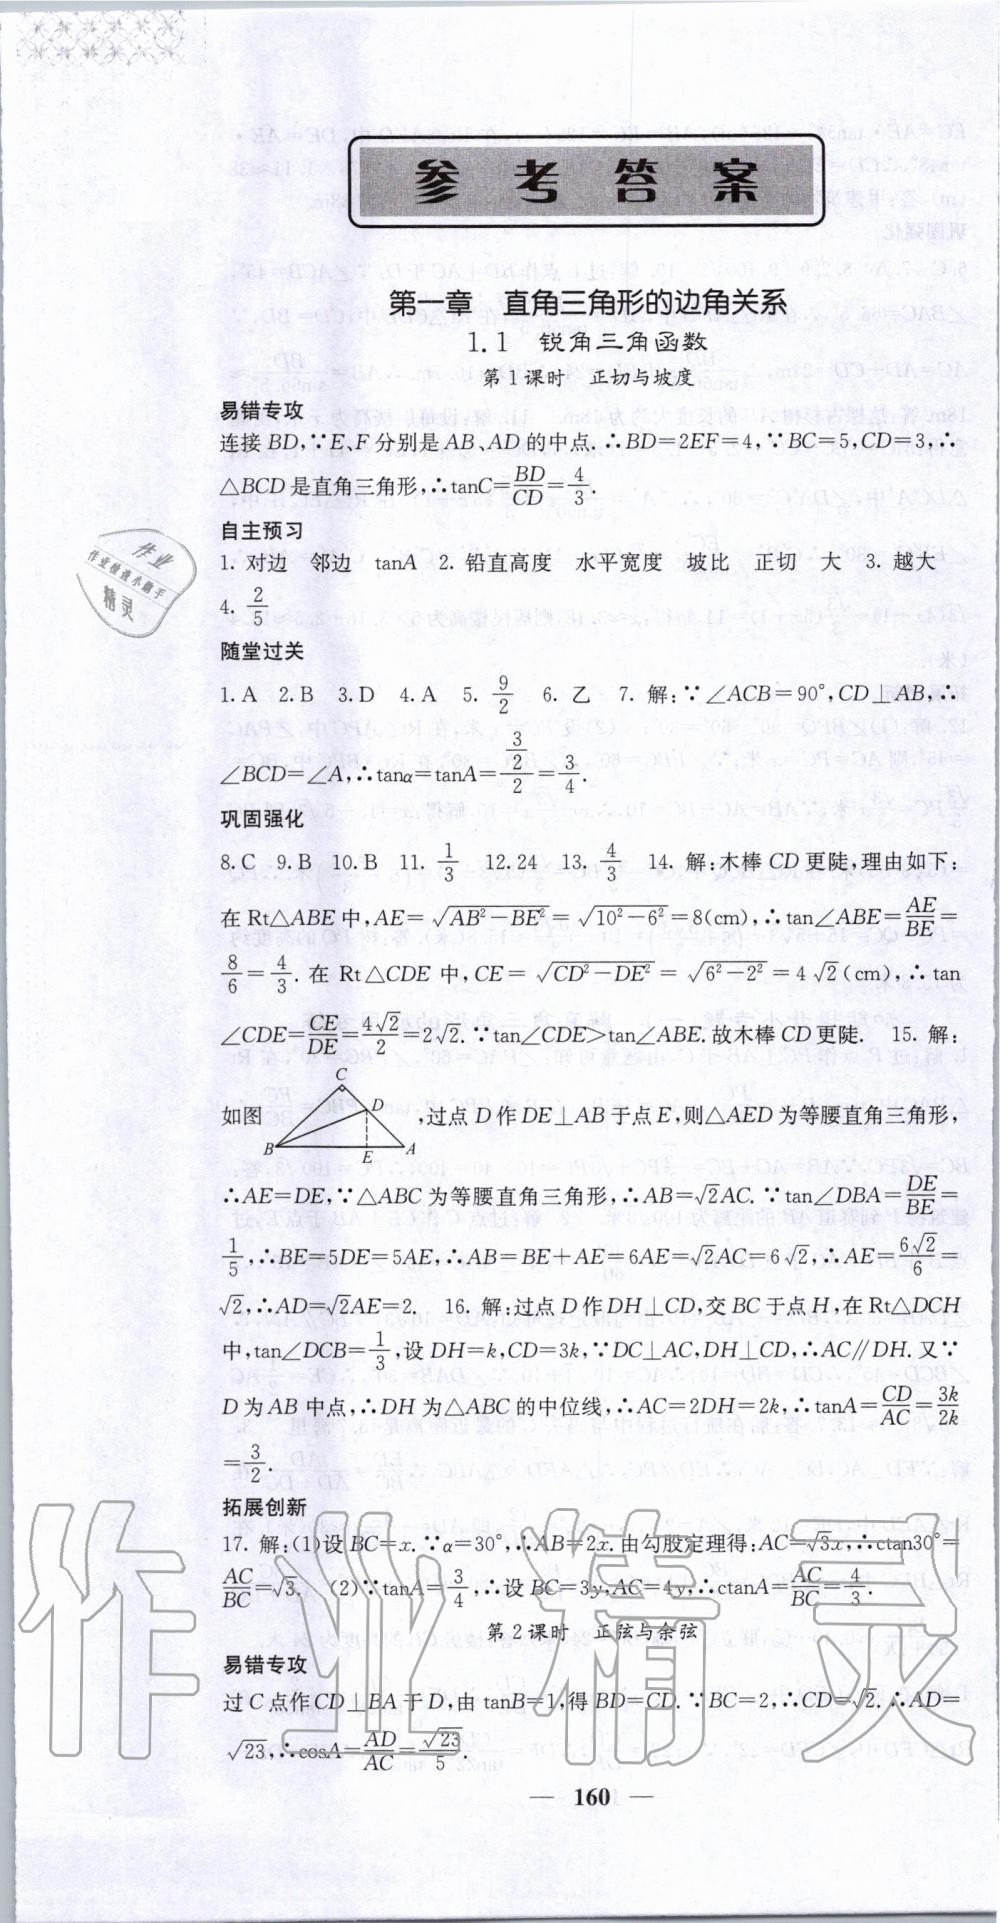 参考答案
第一章 直角三角形的边角关系
1.1 锐角三角函数
第1课时 正切与坡度
易错专攻
连接 BD,∵E、F 分别是 AB、AD 的中点.∴BD=2EF=4,∵BC=5,CD=3,∴
△BCD 是直角三角形,∴tanC=BD/CD=4/3.
自主预习
1. 对边 邻边 tanA 2. 铅直高度 水平宽度 坡比 正切 大 3. 越大
4. 2/5
随堂过关
1. A 2. B 3. D 4. A 5. 9/2 6. 乙 7. 解:∵∠ACB=90°,CD⊥AB,∴
∠BCD=∠A,∴tanα=tanA=(3/2)/2=3/4.
巩固强化
8. C 9. B 10. B 11. 1/3 12. 24 13. 4/3 14. 解:木棒 CD 更陡,理由如下:
在 Rt△ABE 中,AE=√(AB²-BE²)=√(10²-6²)=8(cm),∴tan∠ABE=AE/BE=
8/6=4/3. 在 Rt△CDE 中,CE=√(CD²-DE²)=√(6²-2²)=4√2(cm),∴tan
∠CDE=CE/DE=4√2/2=2√2.∵tan∠CDE>tan∠ABE.故木棒 CD 更陡. 15. 解:
C
如图 D ,过点 D 作 DE⊥AB 于点 E,则△AED 为等腰直角三角形,
B E A
∴AE=DE,∵△ABC 为等腰直角三角形,∴AB=√2AC.∵tan∠DBA=DE/BE=
1/5,∴BE=5DE=5AE,∴AB=BE+AE=6AE=√2AC=6√2,∴AE=6√2/6=
√2,∴AD=√2AE=2. 16. 解:过点 D 作 DH⊥CD,交 BC 于点 H,在 Rt△DCH
中,tan∠DCB=1/3,设 DH=k,CD=3k,∵DC⊥AC,DH⊥CD,∴AC∥DH.又∵
D 为 AB 中点,∴DH 为△ABC 的中位线,∴AC=2DH=2k,∴tanA=CD/AC=3k/2k
=3/2.
拓展创新
17. 解:(1)设 BC=x.∵α=30°,∴AB=2x.由勾股定理得:AC=√3x,∴ctan30°=
AC/BC=√3. (2)∵tanA=3/4,∴设 BC=3y,AC=4y,∴ctanA=AC/BC=4/3.
第2课时 正弦与余弦
易错专攻
过 C 点作 CD⊥BA 于 D,由 tanB=1,得 BD=CD.∵BC=2,∴CD=√2.∴AD=
√23,∴cosA=AD/AC=√23/5.
— 160 —
作业
作业检查小助手
精灵
作业精灵